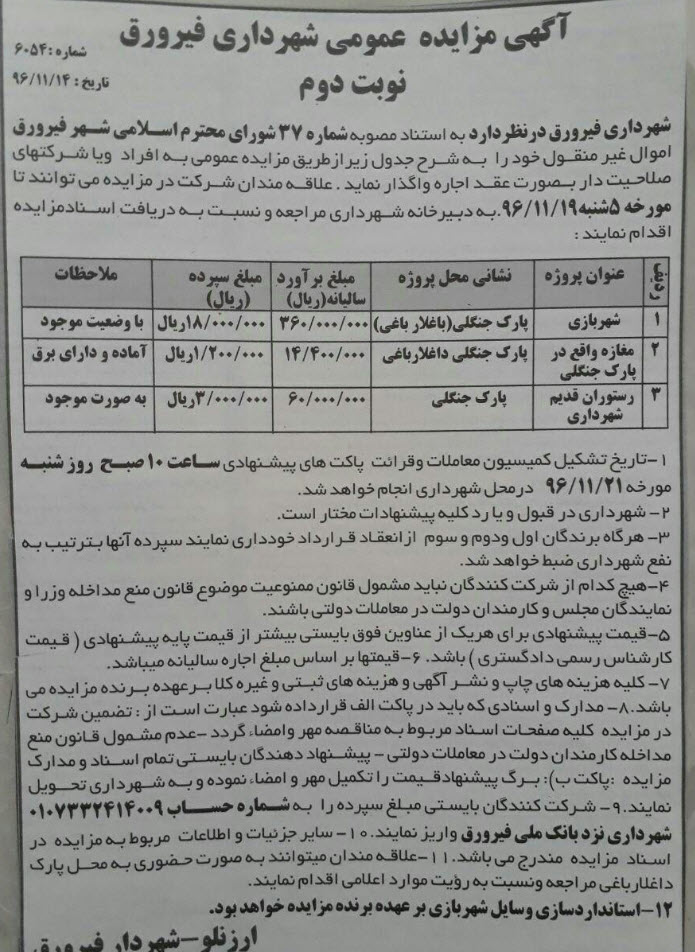 آگهی مزایده عمومی شهرداری فیرورق
شماره: ۶۰۵۴
نوبت دوم
تاریخ: ۹۶/۱۱/۱۴
شهرداری فیرورق درنظردارد به استناد مصوبه شماره ۳۷ شورای محترم اسلامی شهر فیرورق
اموال غیر منقول خود را به شرح جدول زیر از طریق مزایده عمومی به افراد ویا شرکتهای
صلاحیت دار بصورت عقد اجاره واگذار نماید . علاقه مندان شرکت در مزایده می توانند تا
مورخه ۵شنبه ۹۶/۱۱/۱۹. به دبیرخانه شهرداری مراجعه و نسبت به دریافت اسناد مزایده
اقدام نمایند :
ردیف عنوان پروژه نشانی محل پروژه مبلغ برآورد سالیانه(ریال) مبلغ سپرده (ریال) ملاحظات
۱ شهربازی پارک جنگلی(باغلار باغی) ۳۶۰/۰۰۰/۰۰۰ ۱۸/۰۰۰/۰۰۰ریال با وضعیت موجود
۲ مغازه واقع در پارک جنگلی پارک جنگلی داغلارباغی ۱۴/۴۰۰/۰۰۰ ۱/۲۰۰/۰۰۰ریال آماده و دارای برق
۳ رستوران قدیم شهرداری پارک جنگلی ۶۰/۰۰۰/۰۰۰ ۳/۰۰۰/۰۰۰ریال به صورت موجود
۱-تاریخ تشکیل کمیسیون معاملات وقرائت پاکت های پیشنهادی ساعت ۱۰ صبح روز شنبه
مورخه ۹۶/۱۱/۲۱ درمحل شهرداری انجام خواهد شد.
۲- شهرداری در قبول و یا رد کلیه پیشنهادات مختار است.
۳- هرگاه برندگان اول ودوم و سوم ازانعقاد قرارداد خودداری نمایند سپرده آنها بترتیب به
نفع شهرداری ضبط خواهد شد.
۴-هیچ کدام از شرکت کنندگان نباید مشمول قانون ممنوعیت موضوع قانون منع مداخله وزرا و
نمایندگان مجلس و کارمندان دولت در معاملات دولتی باشند.
۵-قیمت پیشنهادی برای هریک از عناوین فوق بایستی بیشتر از قیمت پایه پیشنهادی ( قیمت
کارشناس رسمی دادگستری ) باشد. ۶-قیمتها بر اساس مبلغ اجاره سالیانه میباشد.
۷- کلیه هزینه های چاپ و نشر آگهی و هزینه های ثبتی و غیره کلا برعهده برنده مزایده می
باشد.۸- مدارک و اسنادی که باید در پاکت الف قرارداده شود عبارت است از : تضمین شرکت
در مزایده کلیه صفحات اسناد مربوط به مناقصه مهر وامضاء گردد -عدم مشمول قانون منع
مداخله کارمندان دولت در معاملات دولتی - پیشنهاد دهندگان بایستی تمام اسناد و مدارک
مزایده :پاکت ب): برگ پیشنهادقیمت را تکمیل مهر و امضاء نموده و به شهرداری تحویل
نمایند.۹- شرکت کنندگان بایستی مبلغ سپرده را به شماره حساب ۰۱۰۷۳۳۲۴۱۴۰۰۹
شهرداری نزد بانک ملی فیرورق واریز نمایند.۱۰- سایر جزئیات و اطلاعات مربوط به مزایده در
اسناد مزایده مندرج می باشد.۱۱-علاقه مندان میتوانند به صورت حضوری به محل پارک
داغلارباغی مراجعه ونسبت به رؤیت موارد اعلامی اقدام نمایند.
۱۲-استانداردسازی وسایل شهربازی بر عهده برنده مزایده خواهد بود.
ارزنلو-شهردار فیرورق